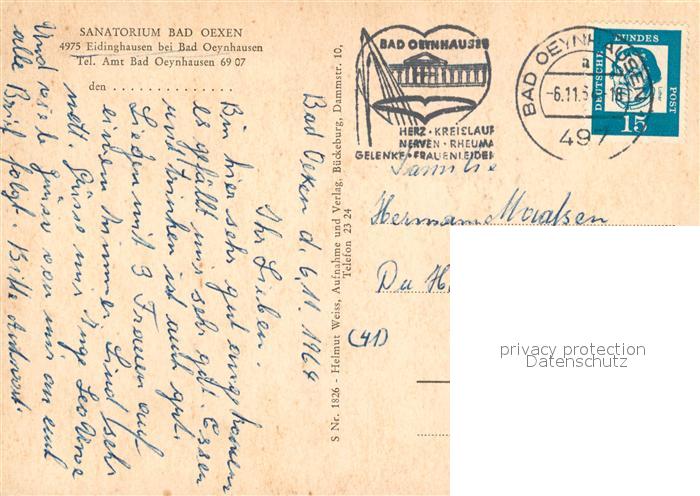 SANATORIUM BAD OEXEN
4975 Eidinghausen bei Bad Oeynhausen
Tel. Amt Bad Oeynhausen 69 07
den
Bad Oexen d. 6.11.1964
Ihr Lieben.
Bin hier sehr gut angekommen
es gefällt mir sehr gut. Essen
und trinken ist auch gut.
Liegen mit 3 Frauen auf
einem Zimmer. Sind sehr
nett. Grüsse mir Inge
Und viele Grüsse von mir an euch
alle Brief folgt. Bitte Antwort.
S Nr. 1826 - Helmut Weiss, Aufnahme und Verlag, Bückeburg, Dammstr. 10,
Telefon 23 24
BAD OEYNHAUSEN
HERZ · KREISLAUF
NERVEN · RHEUMA
GELENKE · FRAUENLEIDEN
BAD OEYNHAUSEN
a
-6.11.6 -18
497
DEUTSCHE BUNDESPOST
15
Familie
Hermann Maaßen
Du H
(41)
privacy protection
Datenschutz